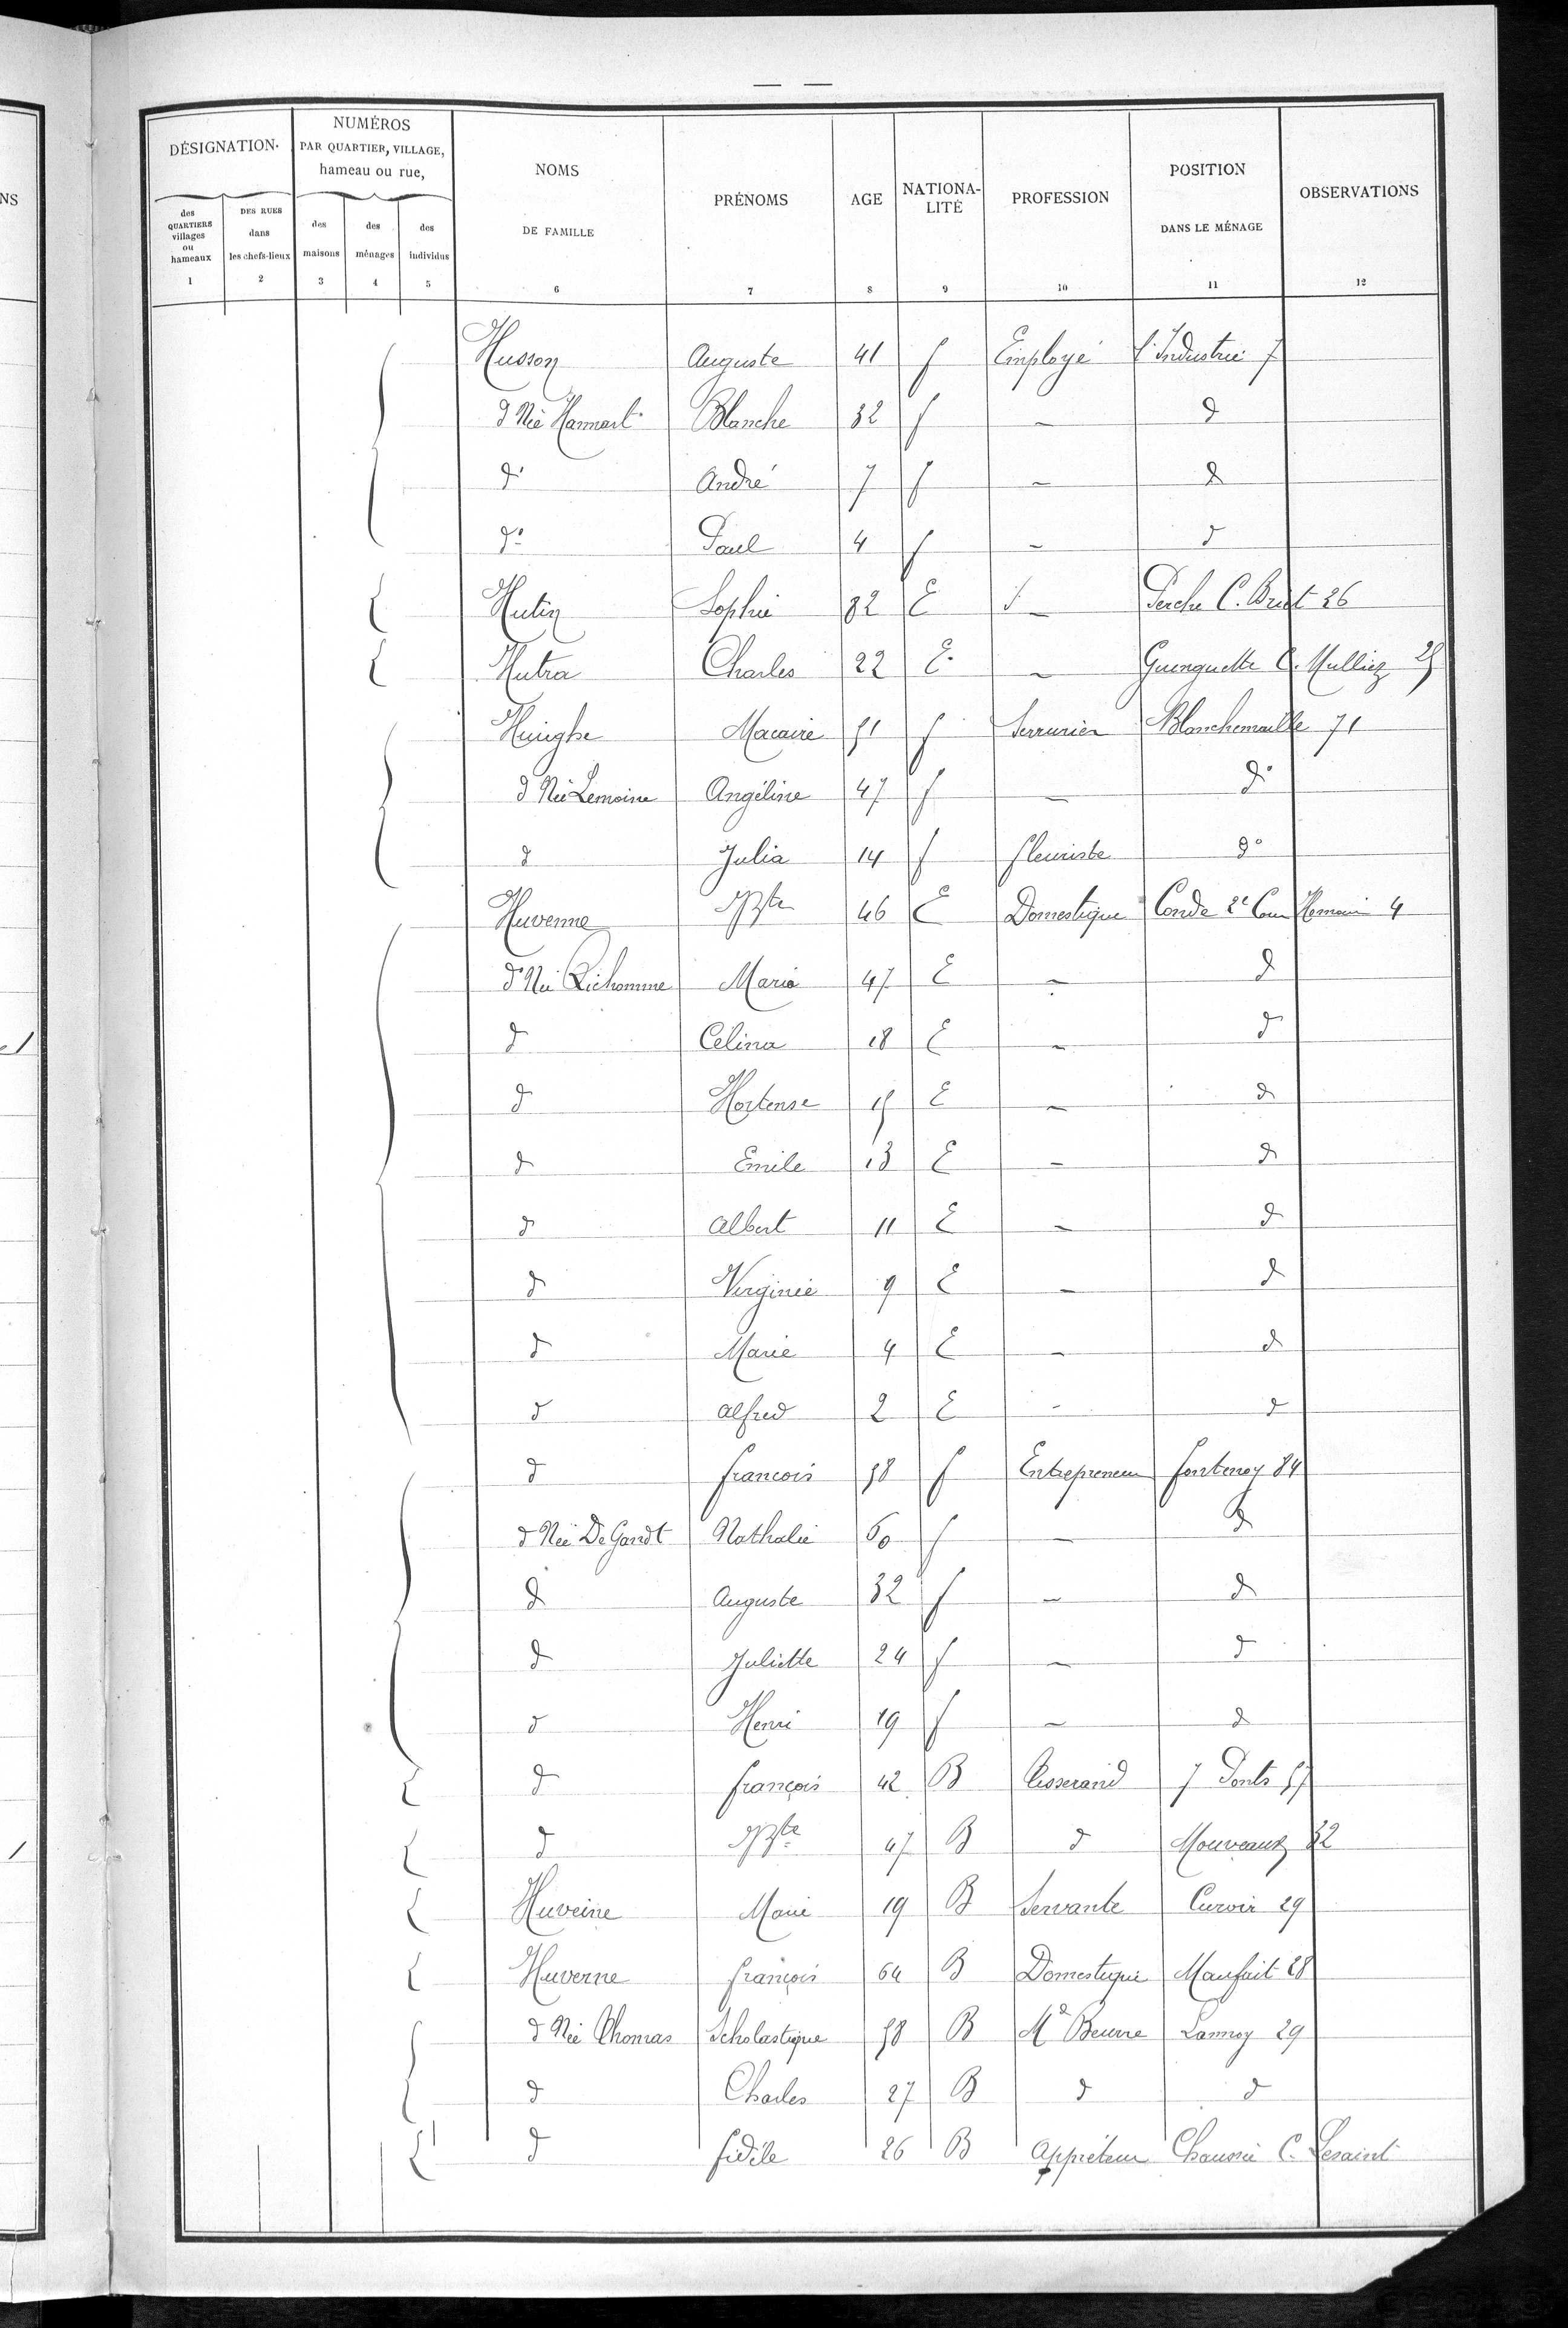 — —
DÉSIGNATION. NUMÉROS PAR QUARTIER, VILLAGE, hameau ou rue, NOMS DE FAMILLE PRÉNOMS AGE NATIONA-LITÉ PROFESSION POSITION DANS LE MÉNAGE OBSERVATIONS
des QUARTIERS villages ou hameaux DES RUES dans les chefs-lieux des maisons des ménages des individus
1 2 3 4 5 6 7 8 9 10 11 12
Husson Auguste 41 f Employé l'Industrie 7
d Née Hannart Blanche 32 f — d
d° André 7 f — d
d° Paul 4 f — d
Hutin Sophie 32 E — Perche C. 26
Hutra Charles 22 E — Guenguette C. Mulliez 25
Huighe Macaire 51 f Serrurier Blanchemaille 71
d Née Lemoine Angéline 47 f — d°
d Julia 14 f fleuriste d°
Huvenne JBte 46 E Domestique Condé 2e Cour 4
d° Née Richomme Maria 47 E — d
d Celina 18 E — d
d Hortense 15 E — d
d Emile 13 E — d
d Albert 11 E — d
d Virginie 9 E — d
d Marie 4 E — d
d Alfred 2 E — d
d francois 58 f Entrepreneur fontenoy 84
d Née De Gandt Nathalie 60 f — d
d Auguste 32 f — d
d Juliette 24 f — d
d Henri 19 f — d
d françois 42 B tisserand 7 Ponts 57
d JBte 47 B d Mouveaux 32
Huveine Marie 19 B Servante Curoir 29
Huverne françois 64 B Domestique Maufait 28
d Née Thomas Scholastique 58 B Md Beurre Lannoy 29
d Charles 27 B d d
d fidèle 26 B Appréteur Chaussée C. Lesaint